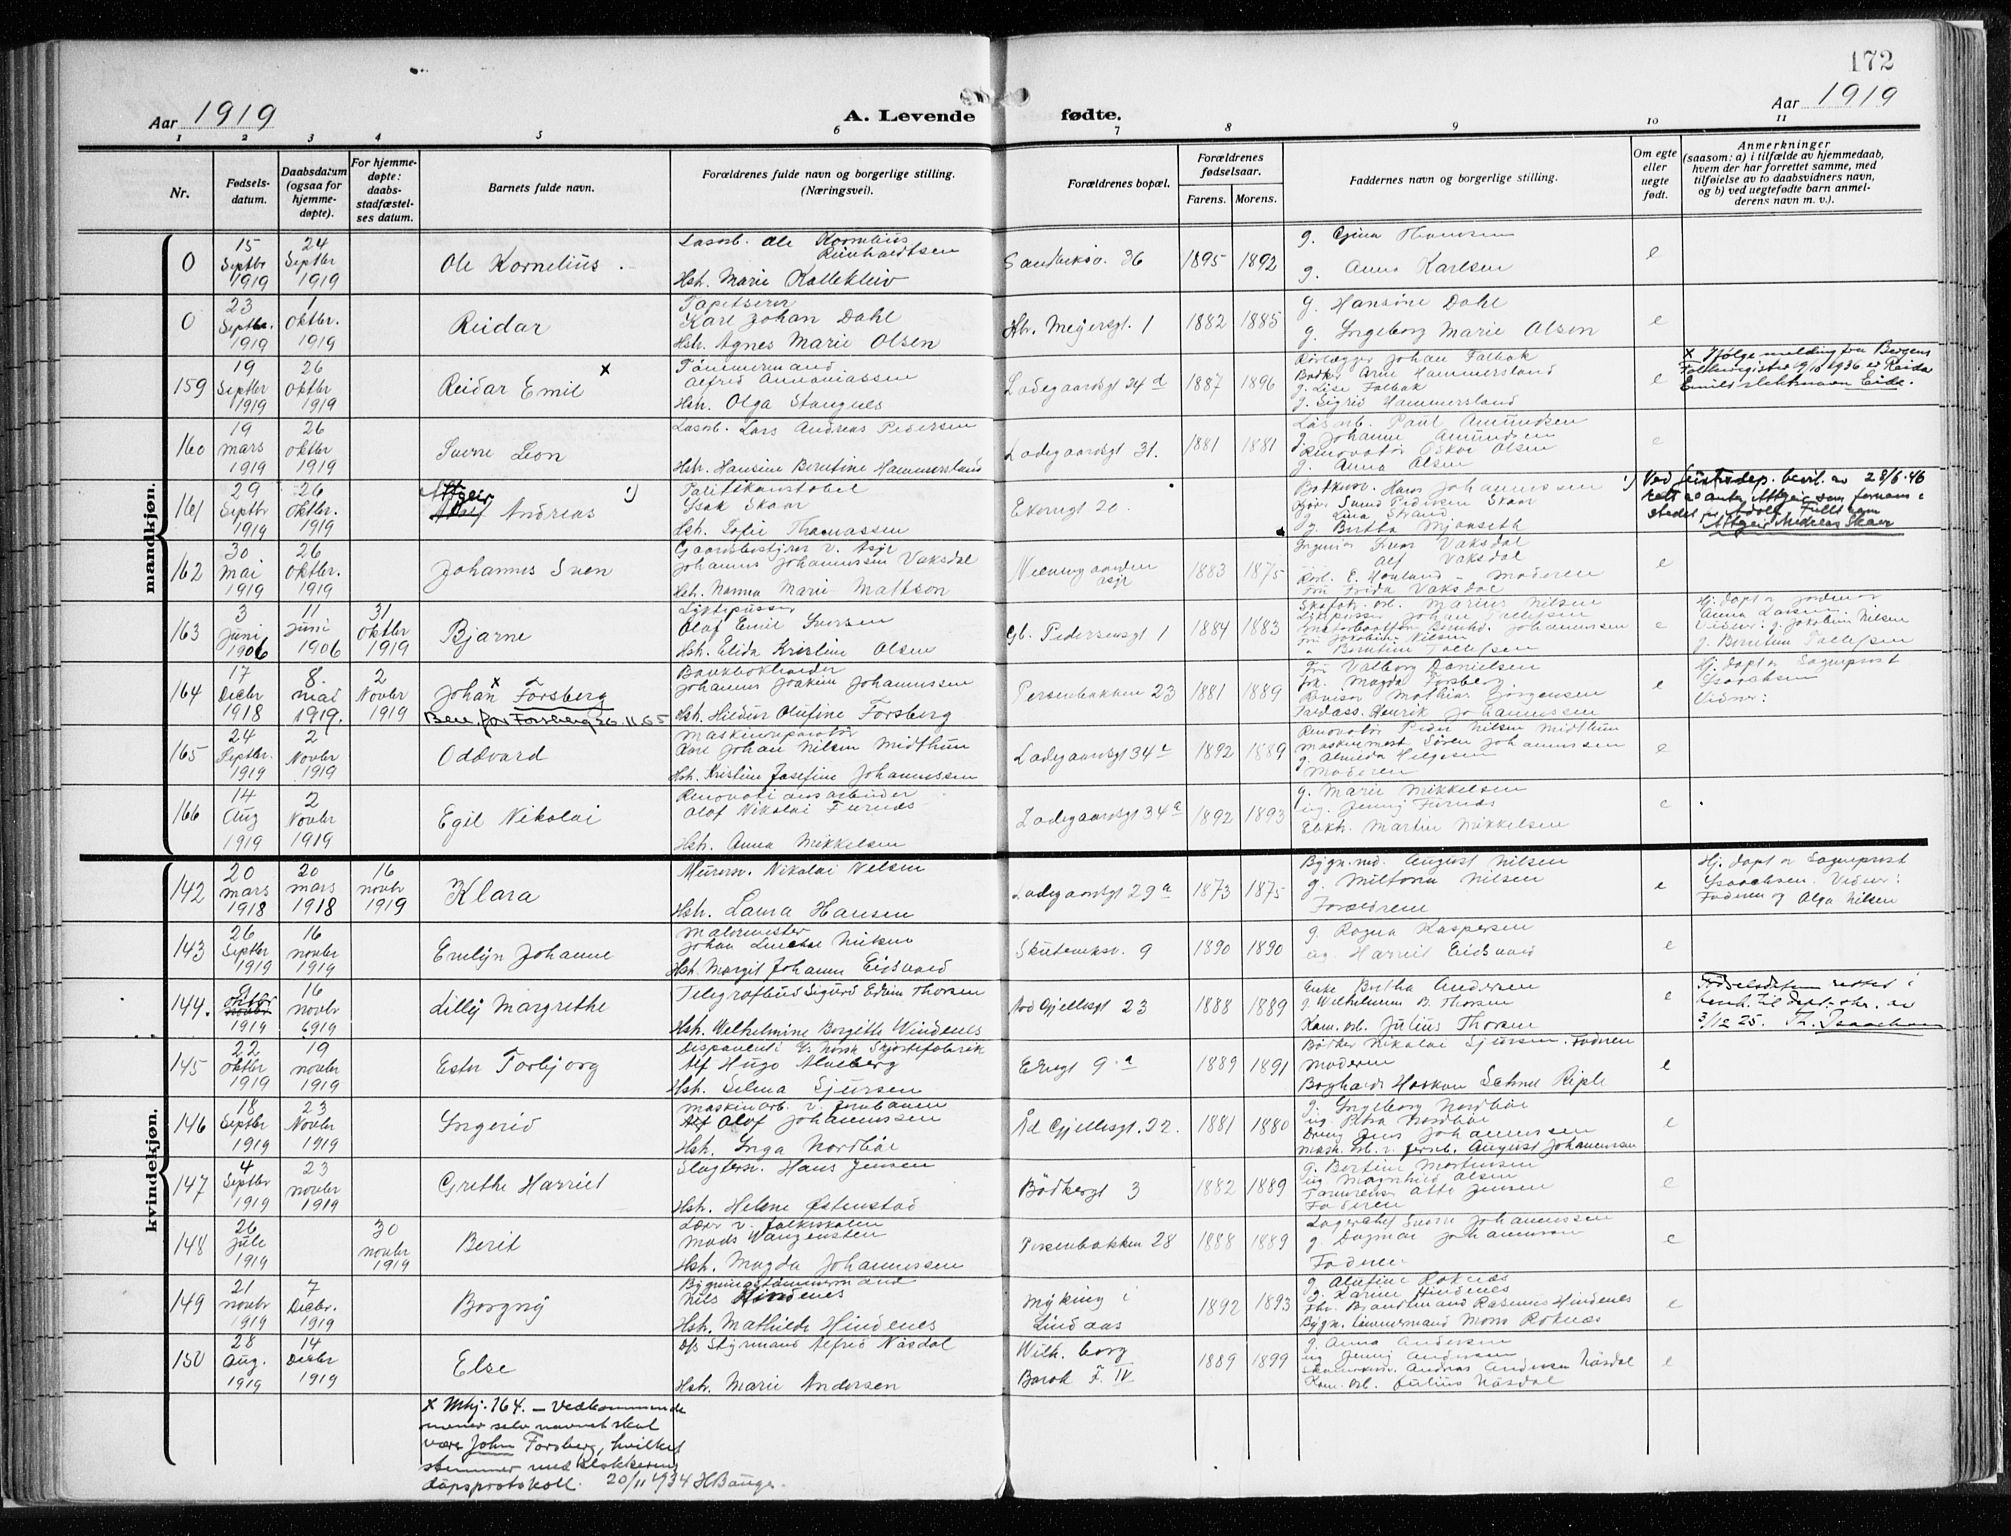 172
Aar 1919
A. Levende fødte.
Aar 1919
1 2 3 4 5 6 7 8 9 10 11
Nr.
Fødsels-
datum.
Daabsdatum
(ogsaa for
hjemme-
døpte).
For hjemme-
døpte:
daabs-
stadfæstel-
ses datum.
Barnets fulde navn.
Forældrenes fulde navn og borgerlige stilling.
(Næringsvei).
Forældrenes bopæl.
Forældrenes
fødselsaar.
Farens. Morens.
Faddernes navn og borgerlige stilling.
Om egte
eller
uegte
født.
Anmerkninger
(saasom: a) i tilfælde av hjemmedaab,
hvem der har forrettet samme, med
tilføielse av to daabsvidners navn,
og b) ved uegtefødte barn anmel-
derens navn m. v.).
mandkjøn.
0
15 Septbr 1919
24 Septbr 1919
Ole Kornelius
Løsarb. Ole Kornelius
Reinhardtsen
Hst. Marie Kallekleiv
Sandviksv. 36
1895 1892
g. Gina Thomsen
g. Anna Karlsen
e
0
23 Septbr. 1919
1 Oktbr. 1919
Reidar
Tapetserer
Karl Johan Dahl
Hst. Agnes Marie Olsen
Hr. Meyersgt. 1
1882 1885
g. Hansine Dahl
g. Ingeborg Marie Olsen
e
159
19 Septbr 1919
26 Oktbr 1919
Reidar Emil x
Tømmermand
Alfred Annaniassen
Hst. Olga Stangnes
Ladegaardsgt 24 d
1887 1896
Rørlægger Johan Falbak
Bødker Arne Hammersland
g. Lise Falbak
g. Sigrid Hammersland
e
x Ifølge melding fra Bergens
Folkeregister 9/10 1936 er Reidar
Emils slektsnavn Eide.
160
19 mars 1919
26 Oktbr 1919
Sverre Leon
Løsarb. Lars Andreas Pedersen
Hst. Hansine Berntine Hammersland
Ladegaardsgt 31.
1881 1881
Løsarb. Paul Amundsen
g. Johanne Amundsen
Renovatør Oskar Olsen
g. Anna Olsen
e
161
29 Septbr 1919
26 Oktbr 1919
Attgeir
Adolf Andreas 1)
Politikonstabel
Isak Skaar
Hst. Sofie Thomassen
Ekrengt 20.
Hans Johannessen
Pedersen Skaar
g. Lina Strand
g. Britha Mjanseth
1) Ved justisdep. bevil. av 28/6.46
rett å anta Attgeir som fornavn i
stedet for Adolf. Fullt navn
Attgeir Andreas Skaar
162
30 Mai 1919
26 Oktbr. 1919
Johannes Sven
Gaardsbestyrer v. Asyl
Johannes Johannessen Vaksdal
Hst. Nanna Marie Mattson
asyl
1883 1875
Ingeniør Vaksdal
Alf Vaksdal
E. Hovland - Moderen
Frk. Frida Vaksdal
e
163
3 Juni 1906
11 Juni 1906
31 Oktbr 1919
Bjarne
Lygtepusser
Olaf Emil Iversen
Hst. Elida Kristine Olsen
Gl. Pedersensgt 1
1884 1883
Marius Nilsen
Lygtepusser Johan Tollefsen
Johannessen
Fru Jakobine Nilsen
" Berntine Tollefsen
e
Hj. døpt av jordmor
Anna Larsen
Vidner: g. Jakobine Nilsen
g. Berntine Tollefsen
164
17 Decbr 1918
8. mai 1919.
2 Novbr 1919
Johan x Forsberg
Bev. for Forsberg 26.11.55
Bankbokholder
Johannes Joakim Johannessen
Hst. Hildur Olufine Forsberg
Persenbakken 23
1881 1889
Frk. Valborg Danielsen
Frk. Magda Forsberg
Revisor Mathias Jørgensen
Henrik Johannessen
e
Hj. døpt av Sogneprest
Isaachsen
Vidner:
165
24 Septbr. 1919
2 Novbr 1919
Oddvard
Maskinreparatør
Karl Johan Nilsen Midthun
Hst. Kristine Josefine Johannessen
Ladegaardsgt 34 a
1892 1889
Renovatør Peder Nilsen Midthun
Maskinmest. Søren Johannessen
g. Almida Helgesen
Moderen
e
166
14 Aug 1919
2 Novbr 1919
Egil Nikolai
Renovationsarbeider
Olaf Nikolai Furnes
Hst. Anna Mikkelsen
Ladegaardsgt 34 a
1892 1893
g. Marie Mikkelsen
ug. Jenny Furnes
Martin Mikkelsen
e
kvindekjøn.
142
20 mars 1918
20 mars 1918
16 novbr 1919
Klara
Murerm. Nikolai Nilsen
Hst. Laura Hansen
Ladegaardsgt 29 a
1873 1875
Bygn. snd. August Nilsen
g. Miltona Nilsen
Forældrene
e
Hj. døpt av Sogneprest
Isaachsen. Vidner:
Faderen og Olga Nilsen
143
26 Septbr 1919
16 novbr 1919
Emlyn Johanne
Malermester
Johan Nilsen
Hst. Margit Johanne Eidsvaad
Skuteviksv. 9
1890 1890
g. Ragna Kaspersen
ug. Harriet Eidsvaad
e
144.
9 oktbr novbr 1919
16 novbr 1919
Lilly Margrethe
Telegrafbud Sigurd Edvin Thorsen
Hst. Wilhelmine Borgitte Windenes
Aad Gjellesgt 23
1888 1889
Enke Britha Andersen
g. Wilhelmine B. Thorsen
Kom. arb. Julius Thorsen
e
Fødselsdatum rettet i
henh. til dept. skr. av
3/12 25. Th. Isaachsen
145
22 Oktbr 1919
19 novbr 1919
Ester Torbjorg
Disponent i Norsk Skjortefabrik
Alf Hugo Alveberg
Hst. Selma Sjursen
Ekregt 9 a
1889 1891
Bødker Nikolai Sjursen. Faderen
Moderen
Boghandl. Haakon Schnel Riple
e
146
18 Septbr 1919
23 Novbr 1919
Ingerid
Maskinarb. v. Jernbanen
Alf Olaf Johannessen
Hst. Inga Nordbøe
Åd Gjellesgt. 22.
1881 1880
g. Ingeborg Nordbøe
ug. Petra Nordbøe
Dreng Jens Johannessen
Mask. arb. v. jernb. August Johannessen
e
147
4 Septbr 1919
23 novbr 1919
Grethe Harriet
Slagterm. Hans Jensen
Hst. Helene Østenstad
Bødkergt 3
1882 1889
g. Bertine Mortensen
ug Magnhild Olsen
Otto Jensen
Faderen
e
148
26 Jule 1919
30 novbr 1919
Berit
Lærer v. folkeskolen
Mads Wangensten
Hst. Magda Johannessen
Persenbakken 28
1888 1889
Lagerchef Sverre Johannessen
g. Dagmar Johannessen
Faderen
e
149
21 novbr 1919
7 Decbr. 1919
Borgny
Bygningstømmermand
Nils Hindenes
Hst. Mathilde Hindenes
Myking i
Lindaas
1892 1893
g. Alufine Roknes
g. Karine Hindenes
Fhv. Brandmand Rasmus Hindenes
Bygn. tømmermand Mons Roknes
e
150
28 Aug. 1919
14 Decbr 1919
Else
D/s Styrmand Alfred Näsdal
Hst. Marie Andersen
Wilh. borg
Barak F. IV
1889 1899
g. Anna Andersen
ug Jenny Andersen
Andreas Andersen Näsdal
Kom. arb. Julius Näsdal
e
x Mkj. 164. – Vedkommende
mener selv navnet skal
være John Forsberg, hvilket
stemmer med klokkerens
dåpsprotokoll. 20/11 1934 H Bauge.